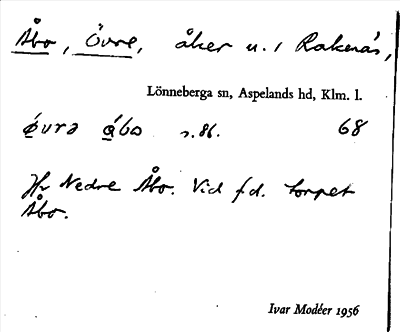 Åbo, Övre, åker u. 1 Rakenäs,
Lönneberga sn, Aspelands hd, Klm. l.
ǿvrə åbo s. 86. 68
Jfr Nedre Åbo. Vid f.d. torpet
Åbo.
Ivar Modéer 1956